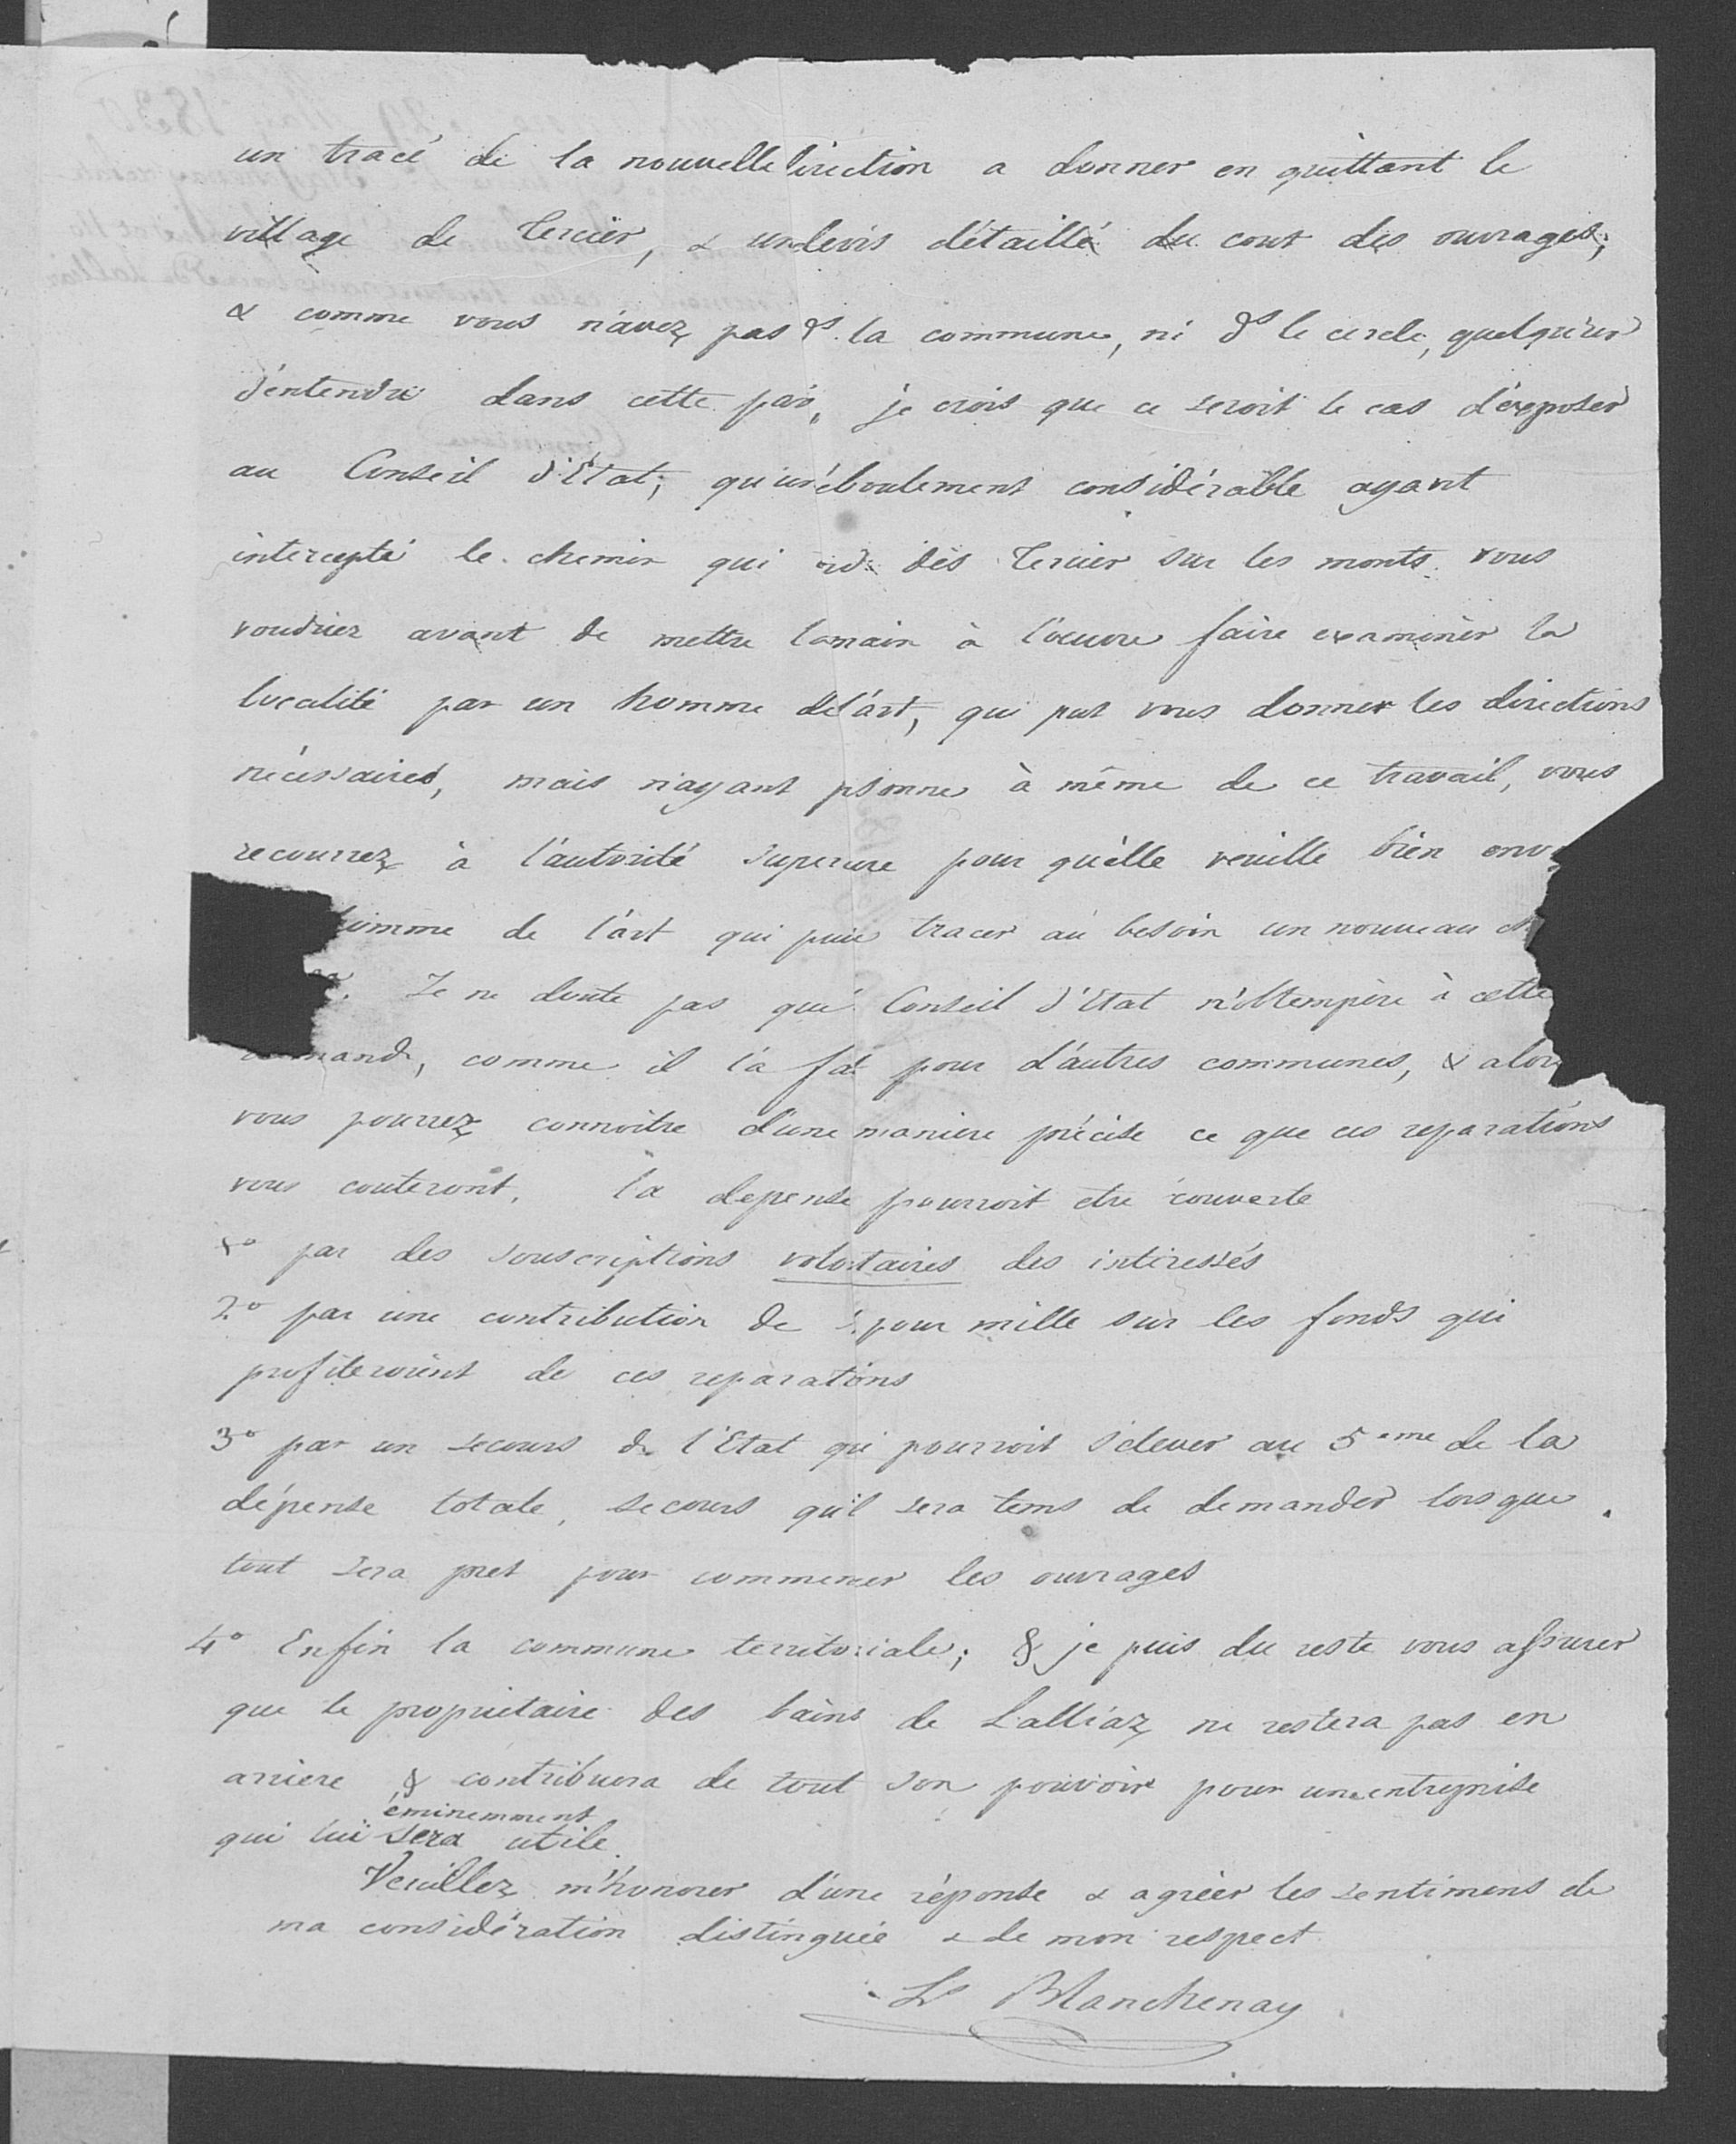 un tracé de la nouvelle direction a donner en quittant le
village de Tercier, & un devis détaillé du cout des ouvrages;
& comme vous n'avez pas ds la commune, ni ds le cercle, quelqu'un
d'entendu dans cette , je crois que ce seroit le cas d'exposer
au Conseil d'Etat, qu'un éboulement considérable ayant
intercepté le chemin qui dès Tercier sur les monts vous
voudriez avant de mettre la main à l'oeuvre faire examiner la
localité par un homme de l'art, qui put vous donner les directions
nécessaires, mais n'ayant psonne à même de ce travail, vous
recourrez à l'autorité superieure pour qu'elle veuille bien env
homme de l'art qui puie tracer au besoin un nouveau
Je ne doute pas que Conseil d'Etat n'obtempère à cette
mande, comme il l'a fai pour d'autres communes, & alor
vous pourrez connoitre d'une maniere précise ce que ces reparations
vous couteront. la depense pourroit etre couverte
1° par des souscriptions volontaires des intéressés
2° par une contribution de pour mille sur les fonds qui
profiteroient de ces reparations
3° par un secours de l'Etat qui pourroit s'élever au 5eme de la
dépense totale, secours qu'il sera tems de demander lorsque
tout sera pret pour commencer les ouvrages
4° Enfin la commune territoriale; & je puis du reste vous assurer
que le proprietaire des bains de Lalliaz ne restera pas en
arriere & contribuera de tout son pouvoir pour une entreprise
éminemment
qui lui sera utile.
Veuillez m'honorer d'une réponse & agréer les sentimens de
ma considération distinguée & de mon respect
Ls Blanchenay